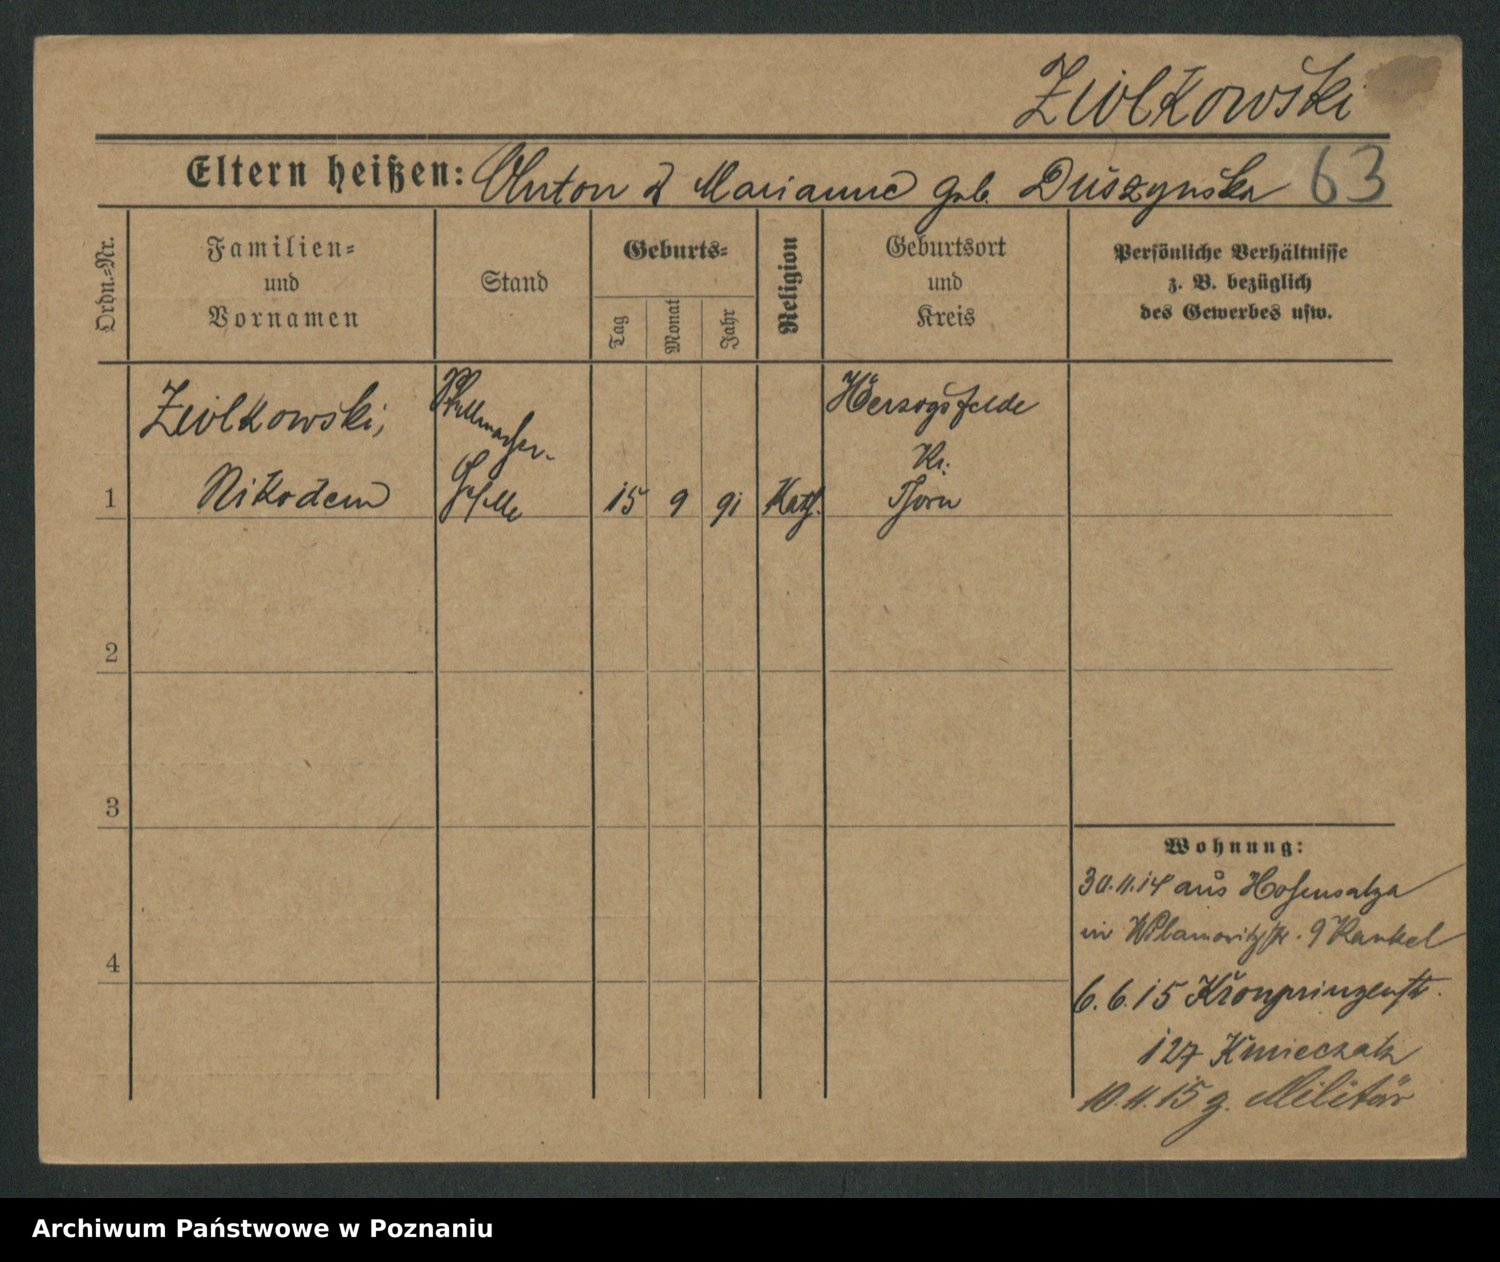 Ziolkowski
Eltern heißen: Anton & Marianne geb. Duszynska 63
Ordn.-Nr.
Familien-
und
Vornamen
Stand
Geburts-
Tag
Monat
Jahr
Religion
Geburtsort
und
Kreis
Persönliche Verhältnisse
z. B. bezüglich
des Gewerbes usw.
Ziolkowski,
Nikodem
Stellmacher-
Geselle
1
15 9 91 Kath.
Herzogsfelde
Kr.
Thorn
2
3
4
Wohnung:
30.11.14 aus Hohensalza
in 9
6.6.15 Kronprinzenstr.
127 Kmieczak
10.11.15 z. Militär
Archiwum Państwowe w Poznaniu